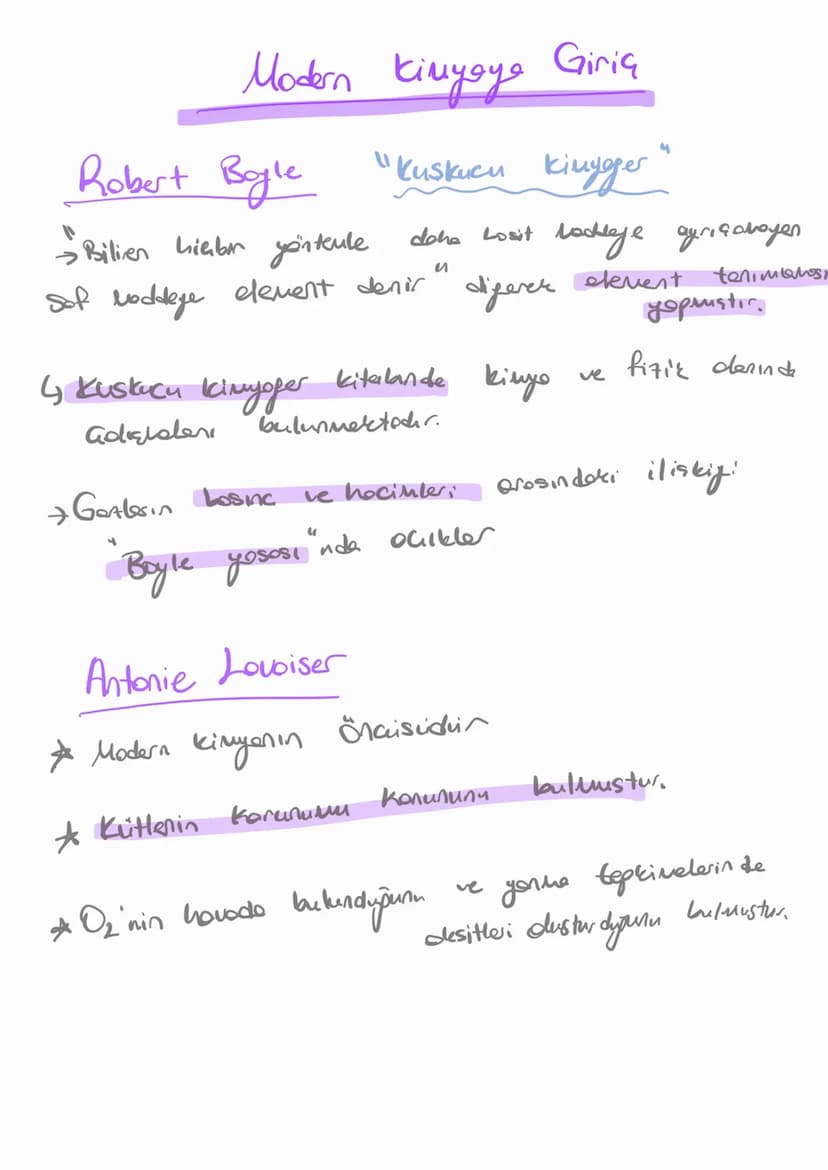 Modern Kimyaya Giriş
Robert Boyle "Kuşkucu Kimyager"
→ "Bilinen hiçbir yöntemle daha basit maddeye ayrışamayan
saf maddeye element denir" diyerek element tanımlaması
yapmıştır.
↳ Kuşkucu kimyager kitabında kimya ve fizik alanında
çalışmaları bulunmaktadır.
→ Gazların basınç ve hacimleri arasındaki ilişkiyi
"Boyle yasası"nda açıklar
Antonie Lavoiser
★ Modern kimyanın Öncüsüdür
★ Kütlenin korunumu kanununu bulmuştur.
★ O₂'nin havada bulunduğunu ve yanma tepkimelerinde
oksitleri oluşturduğunu bulmuştur.